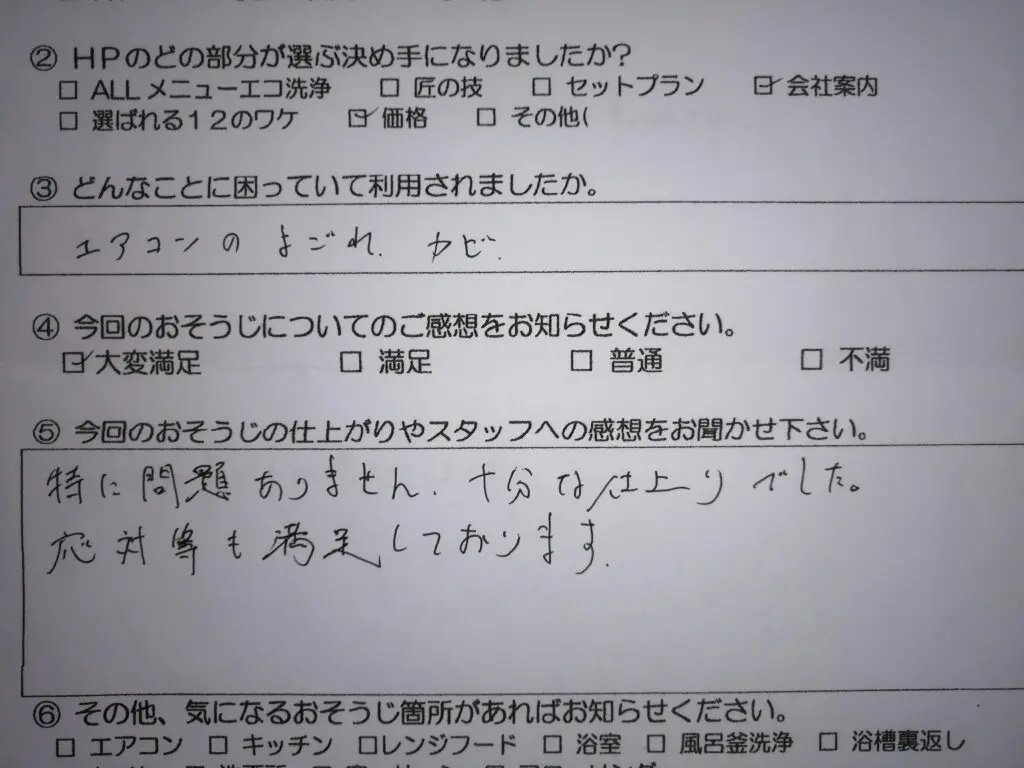 ② HPのどの部分が選ぶ決め手になりましたか?
□ ALLメニューエコ洗浄 □ 匠の技 □ セットプラン ☑ 会社案内
□ 選ばれる12のワケ ☑ 価格 □ その他(
③ どんなことに困っていて利用されましたか。
エアコンの よごれ. カビ.
④ 今回のおそうじについてのご感想をお知らせください。
☑ 大変満足 □ 満足 □ 普通 □ 不満
⑤ 今回のおそうじの仕上がりやスタッフへの感想をお聞かせ下さい。
特に問題ありません. 十分な仕上りでした。
応対等も満足しております.
⑥ その他、気になるおそうじ箇所があればお知らせください。
□ エアコン □ キッチン □レンジフード □ 浴室 □ 風呂釜洗浄 □ 浴槽裏返し